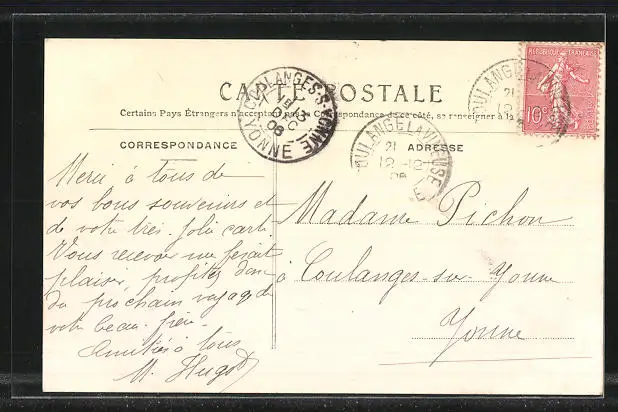 CARTE POSTALE
Certains Pays Étrangers n'acceptent pas la Correspondance de ce côté, se renseigner à la
CORRESPONDANCE
ADRESSE
RÉPUBLIQUE FRANÇAISE
10c
COULANGES-S-YONNE
YONNE
COULANGE LA VINEUSE
21
12
Merci à tous de
vos bons souvenirs et
de votre très jolie carte.
Vous recevoir me ferait
plaisir, profitez donc
du prochain voyage de
votre beau-frère.
Amitiés à tous
M. Hugot
Madame Pichon
à Coulanges-sur-Yonne
Yonne